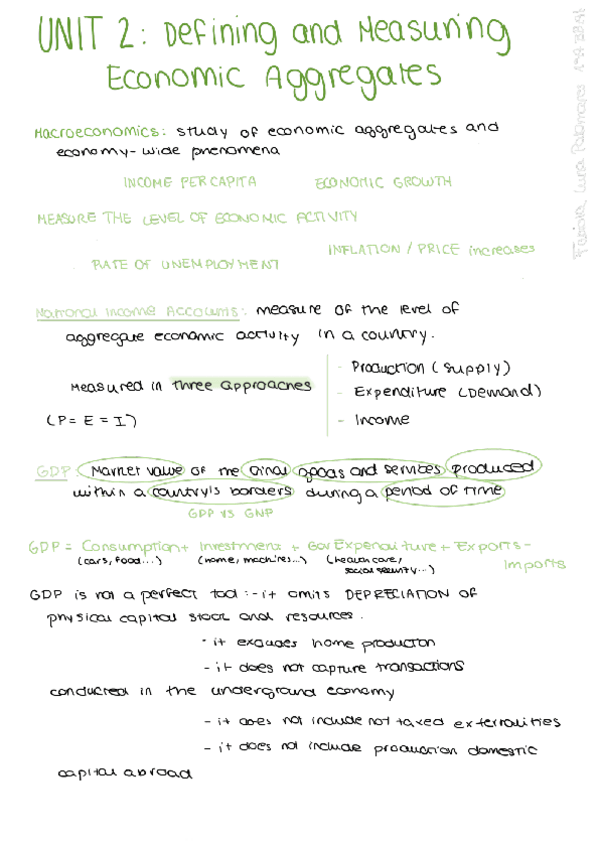 UNIT 2: Defining and Measuring
Economic Aggregates
Macroeconomics: study of economic aggregates and
economy-wide phenomena
INCOME PER CAPITA ECONOMIC GROWTH
MEASURE THE LEVEL OF ECONOMIC ACTIVITY
INFLATION / PRICE increases
RATE OF UNEMPLOYMENT
National Income Accounts: measure of the level of
aggregate economic activity in a country.
- Production (supply)
Measured in three approaches
- Expenditure (Demand)
(P = E = I)
- Income
GDP: Market value of the final goods and services produced
within a country's borders during a period of time
GDP vs GNP
GDP = Consumption + Investment + Gov Expenditure + Exports -
(cars, food...) (home, machines...) (healthcare,
social security...)
Imports
GDP is not a perfect tool: - it omits DEPRECIATION OF
physical capital stock and resources.
- it excludes home production
- it does not capture transactions
conducted in the underground economy
- it does not include not taxed externalities
- it does not include production domestic
capital abroad